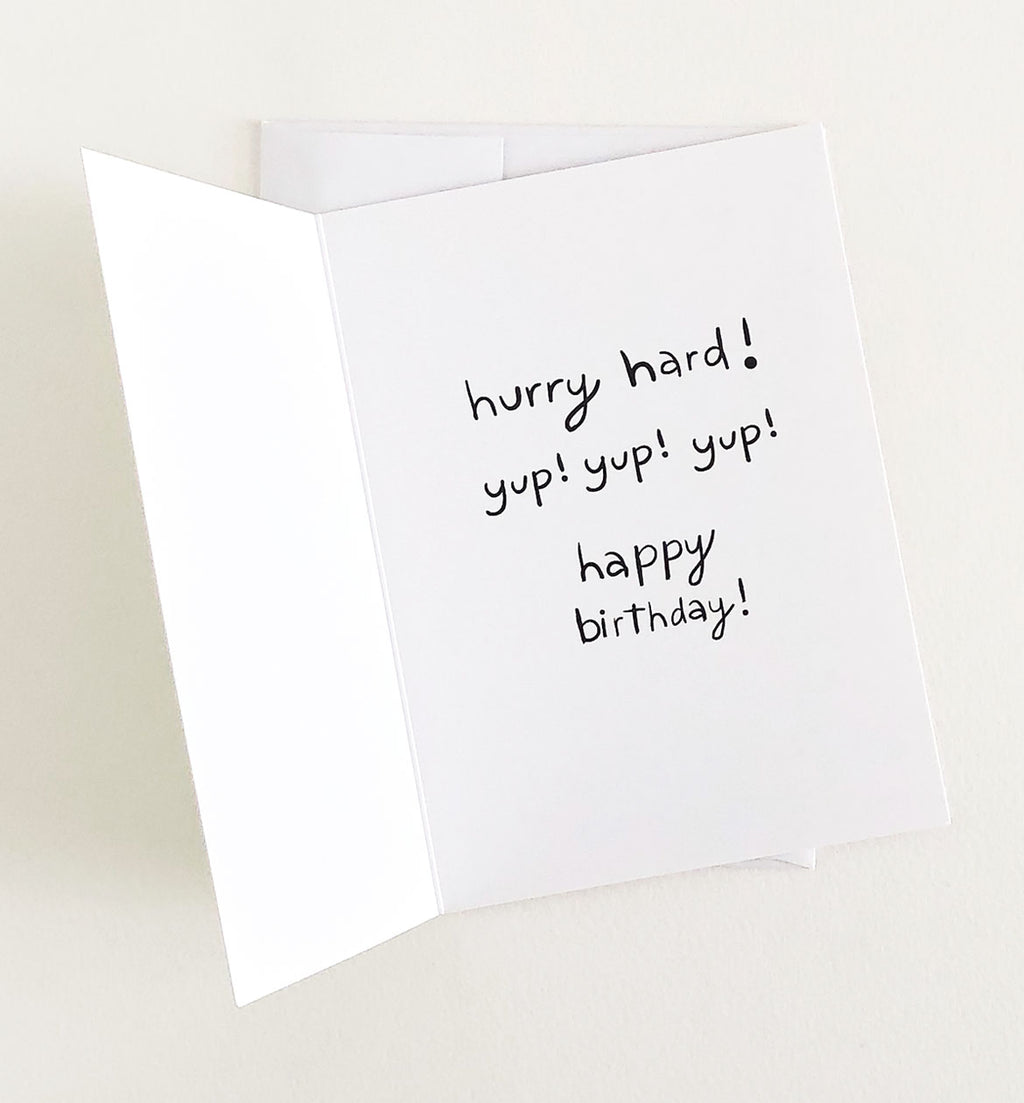 hurry hard!
yup! yup! yup!
happy
birthday!